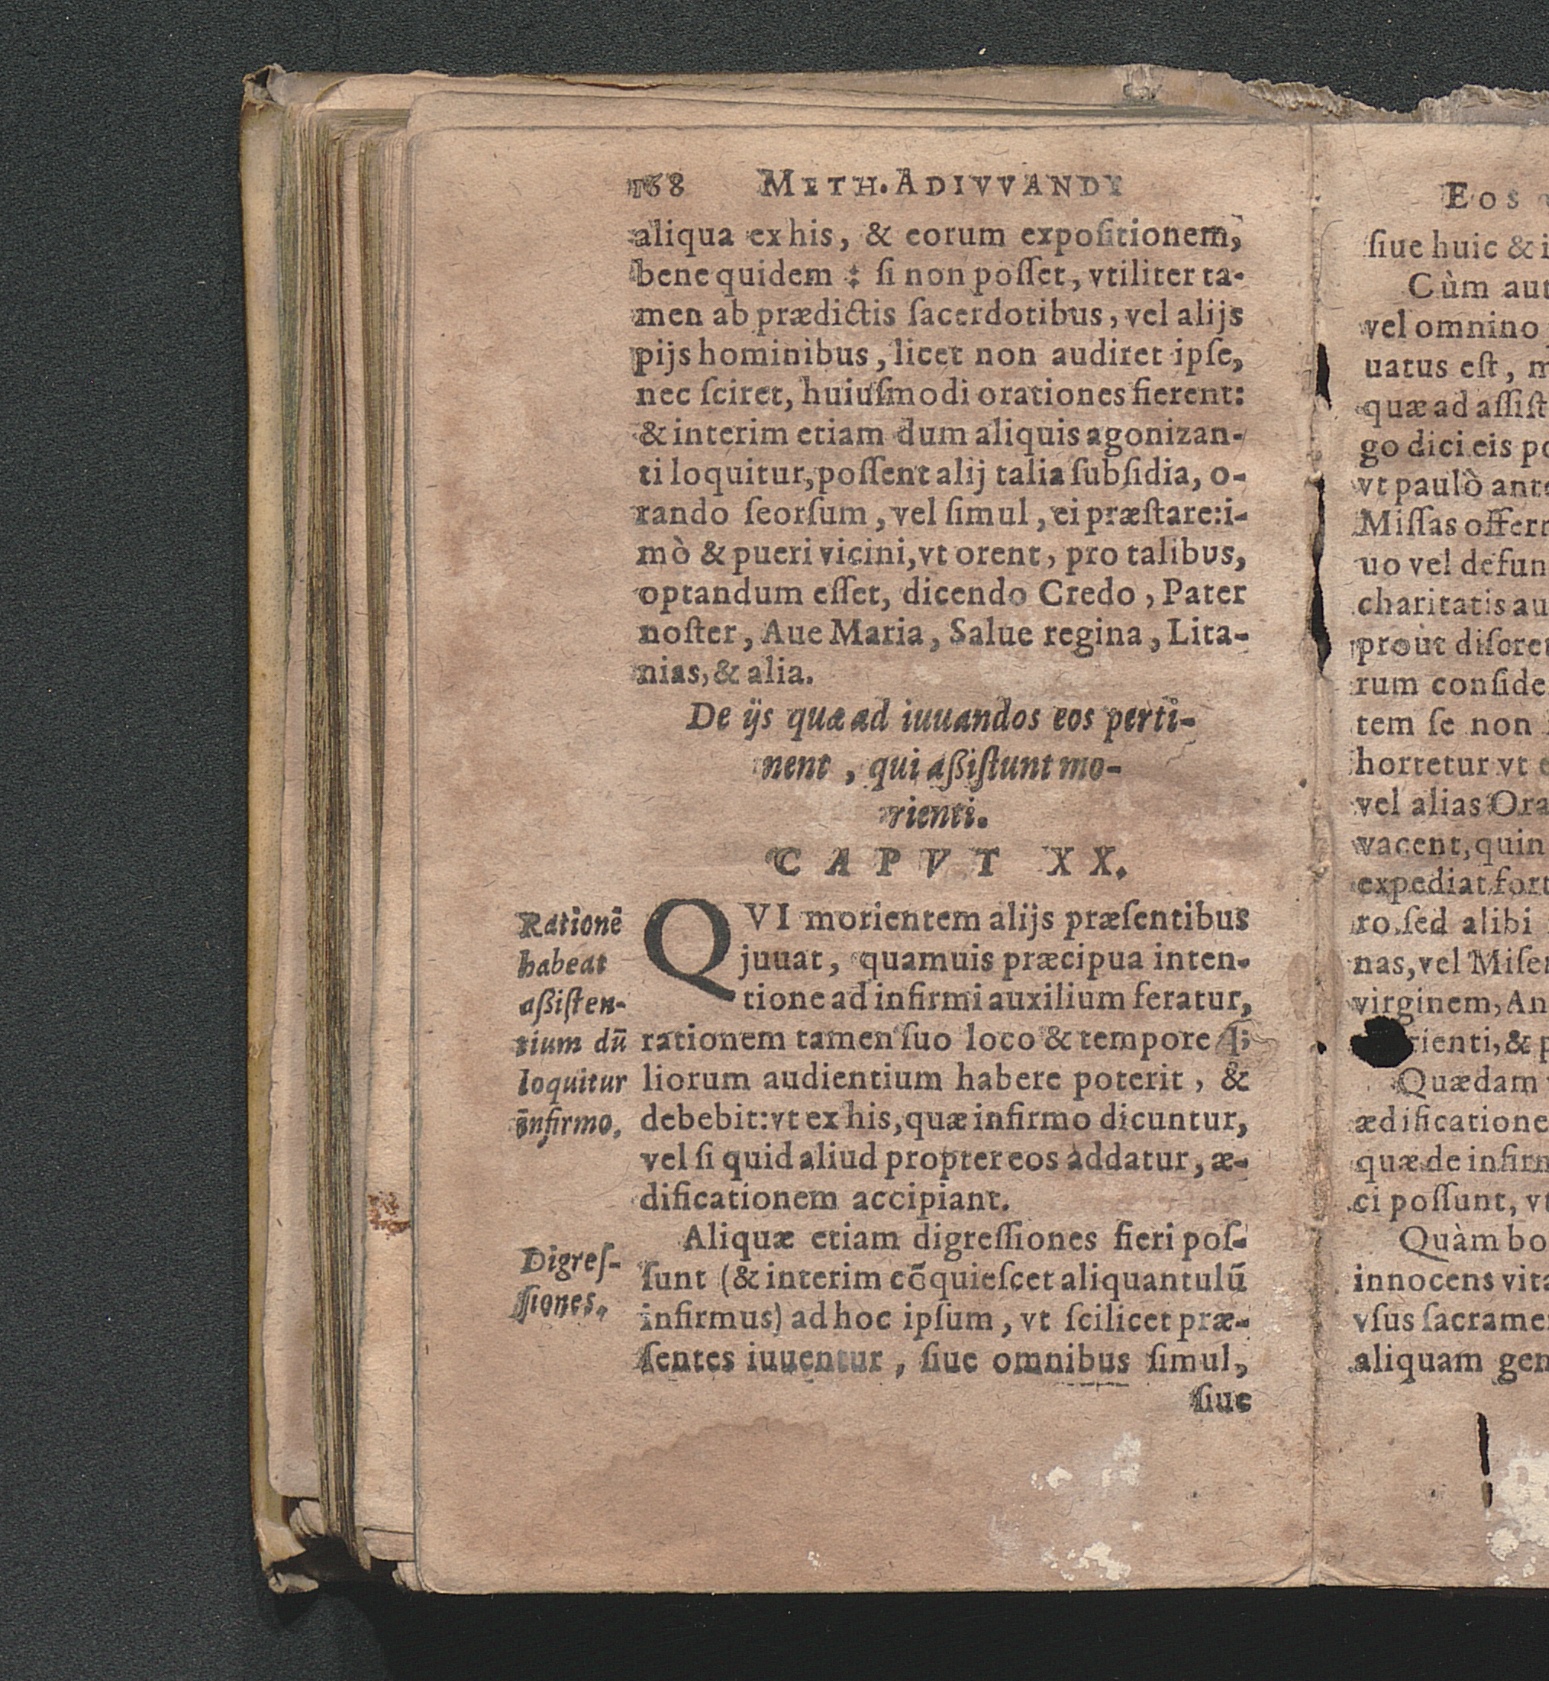 168 METH. ADIVVANDI
aliqua ex his, & eorum expositionem,
bene quidem : si non posset, vtiliter ta-
men ab prædictis sacerdotibus, vel alijs
pijs hominibus, licet non audiret ipse,
nec sciret, huiusmodi orationes fierent:
& interim etiam dum aliquis agonizan-
ti loquitur, possent alij talia subsidia, o-
rando seorsum, vel simul, ei præstare: i-
mò & pueri vicini, vt orent, pro talibus,
optandum esset, dicendo Credo, Pater
noster, Aue Maria, Salue regina, Lita-
nias, & alia.
De ijs quæ ad iuuandos eos perti-
nent, qui aßistunt mo-
rienti.
CAPVT XX.
QVI morientem alijs præsentibus
juuat, quamuis præcipua inten-
tione ad infirmi auxilium feratur,
rationem tamen suo loco & tempore
liorum audientium habere poterit, &
debebit: vt ex his, quæ infirmo dicuntur,
vel si quid aliud propter eos addatur, æ-
dificationem accipiant.
Aliquæ etiam digressiones fieri pos-
sunt (& interim cõquiescet aliquantulũ
infirmus) ad hoc ipsum, vt scilicet præ-
sentes iuuentur, siue omnibus simul,
siue
Rationẽ
habeat
aßisten-
tium dũ
loquitur
infirmo.
Digres-
siones.
EOS
siue huic &
Cùm aut
vel omnino
uatus est, m
quæ ad assist
go dici eis po
vt paulò ante
Missas offerr
uo vel defun
charitatis au
proùt discret
rum conside
tem se non
hortetur vt e
vel alias Ora
vacent, quin
expediat fort
ro, sed alibi
nas, vel Miser
virginem, An
rienti, & p
Quædam
ædificatione
quæ de infirm
ci possunt, vt
Quàm bo
innocens vita
vsus sacrame
aliquam gen